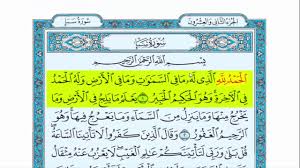 الجزء الثاني والعشرون
سورة سبإ
سُورَةُ سَبَإٍ
بِسْمِ ٱللَّهِ ٱلرَّحْمَٰنِ ٱلرَّحِيمِ
ٱلْحَمْدُ لِلَّهِ ٱلَّذِى لَهُۥ مَا فِى ٱلسَّمَٰوَٰتِ وَمَا فِى ٱلْأَرْضِ وَلَهُ ٱلْحَمْدُ
فِى ٱلْءَاخِرَةِ وَهُوَ ٱلْحَكِيمُ ٱلْخَبِيرُ ١ يَعْلَمُ مَا يَلِجُ فِى ٱلْأَرْضِ وَمَا
يَخْرُجُ مِنْهَا وَمَا يَنزِلُ مِنَ ٱلسَّمَآءِ وَمَا يَعْرُجُ فِيهَا وَهُوَ
ٱلرَّحِيمُ ٱلْغَفُورُ ٢ وَقَالَ ٱلَّذِينَ كَفَرُوا۟ لَا تَأْتِينَا ٱلسَّاعَةُ
قُلْ بَلَىٰ وَرَبِّى لَتَأْتِيَنَّكُمْ عَٰلِمِ ٱلْغَيْبِ لَا يَعْزُبُ عَنْهُ